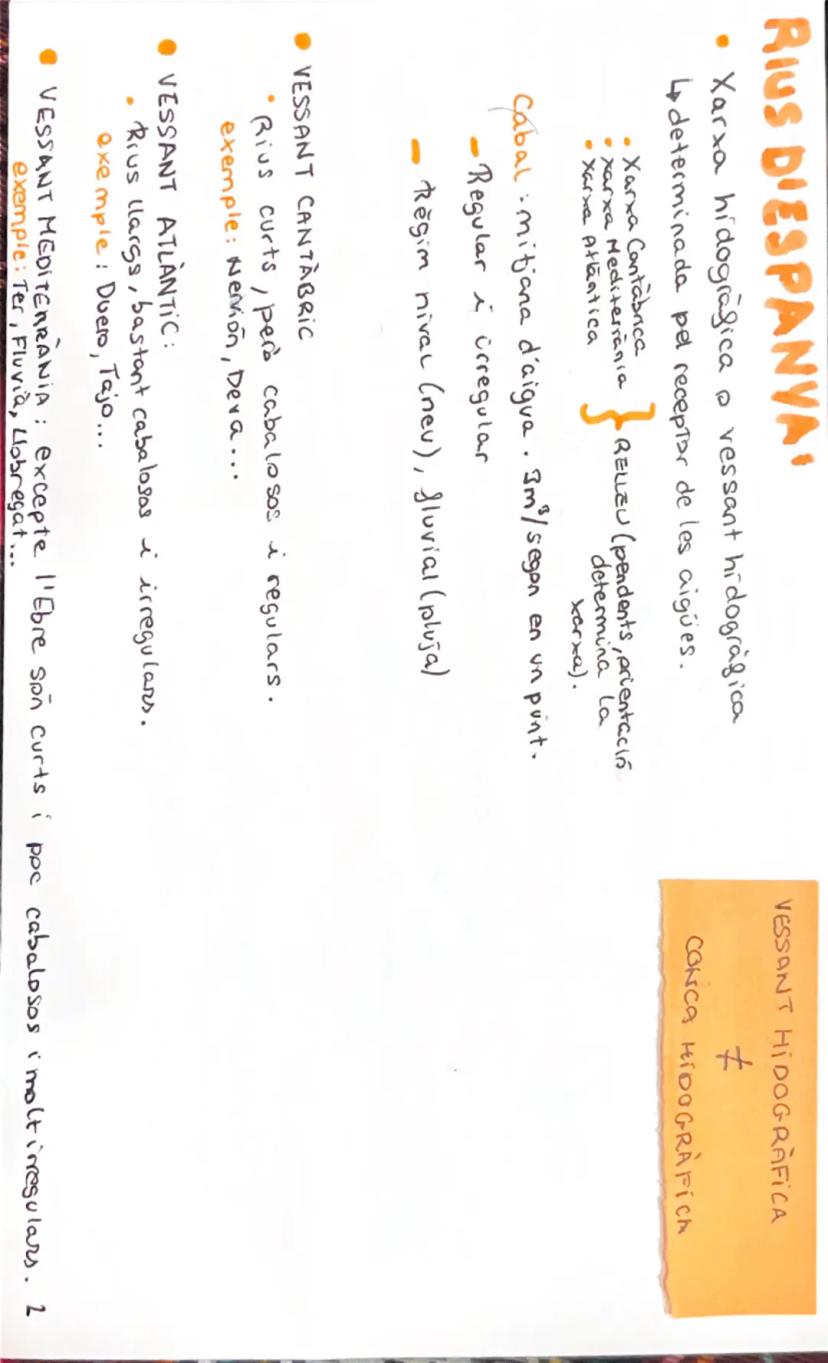 RIUS D'ESPANYA'
• Xarxa hidogràfica o vessant hidogràfica
↳ determinada pel receptor de les aigües.
• Xarxa Cantàbrica
• xarxa Mediterrània } RELLEU (pendents, orientació
• xarxa Atlàntica
determina la
xarxa).
Cabal: mitjana d'aigua. 3m³/segon en un punt.
– Regular i irregular
– Règim nival (neu), fluvial (pluja)
• VESSANT CANTÀBRIC
• Rius curts, però cabalosos i regulars.
exemple: Nervión, Deva...
• VESSANT ATLÀNTIC:
• Rius llargs, bastant cabalosos i irregulars.
exemple: Duero, Tajo...
• VESSANT MEDITERRÀNIA: excepte l'Ebre són curts i poc cabalosos i molt irregulars. 2
exemple: Ter, Fluvià, Llobregat...
VESSANT HIDOGRÀFICA
≠
CONCA HIDOGRÀFICA